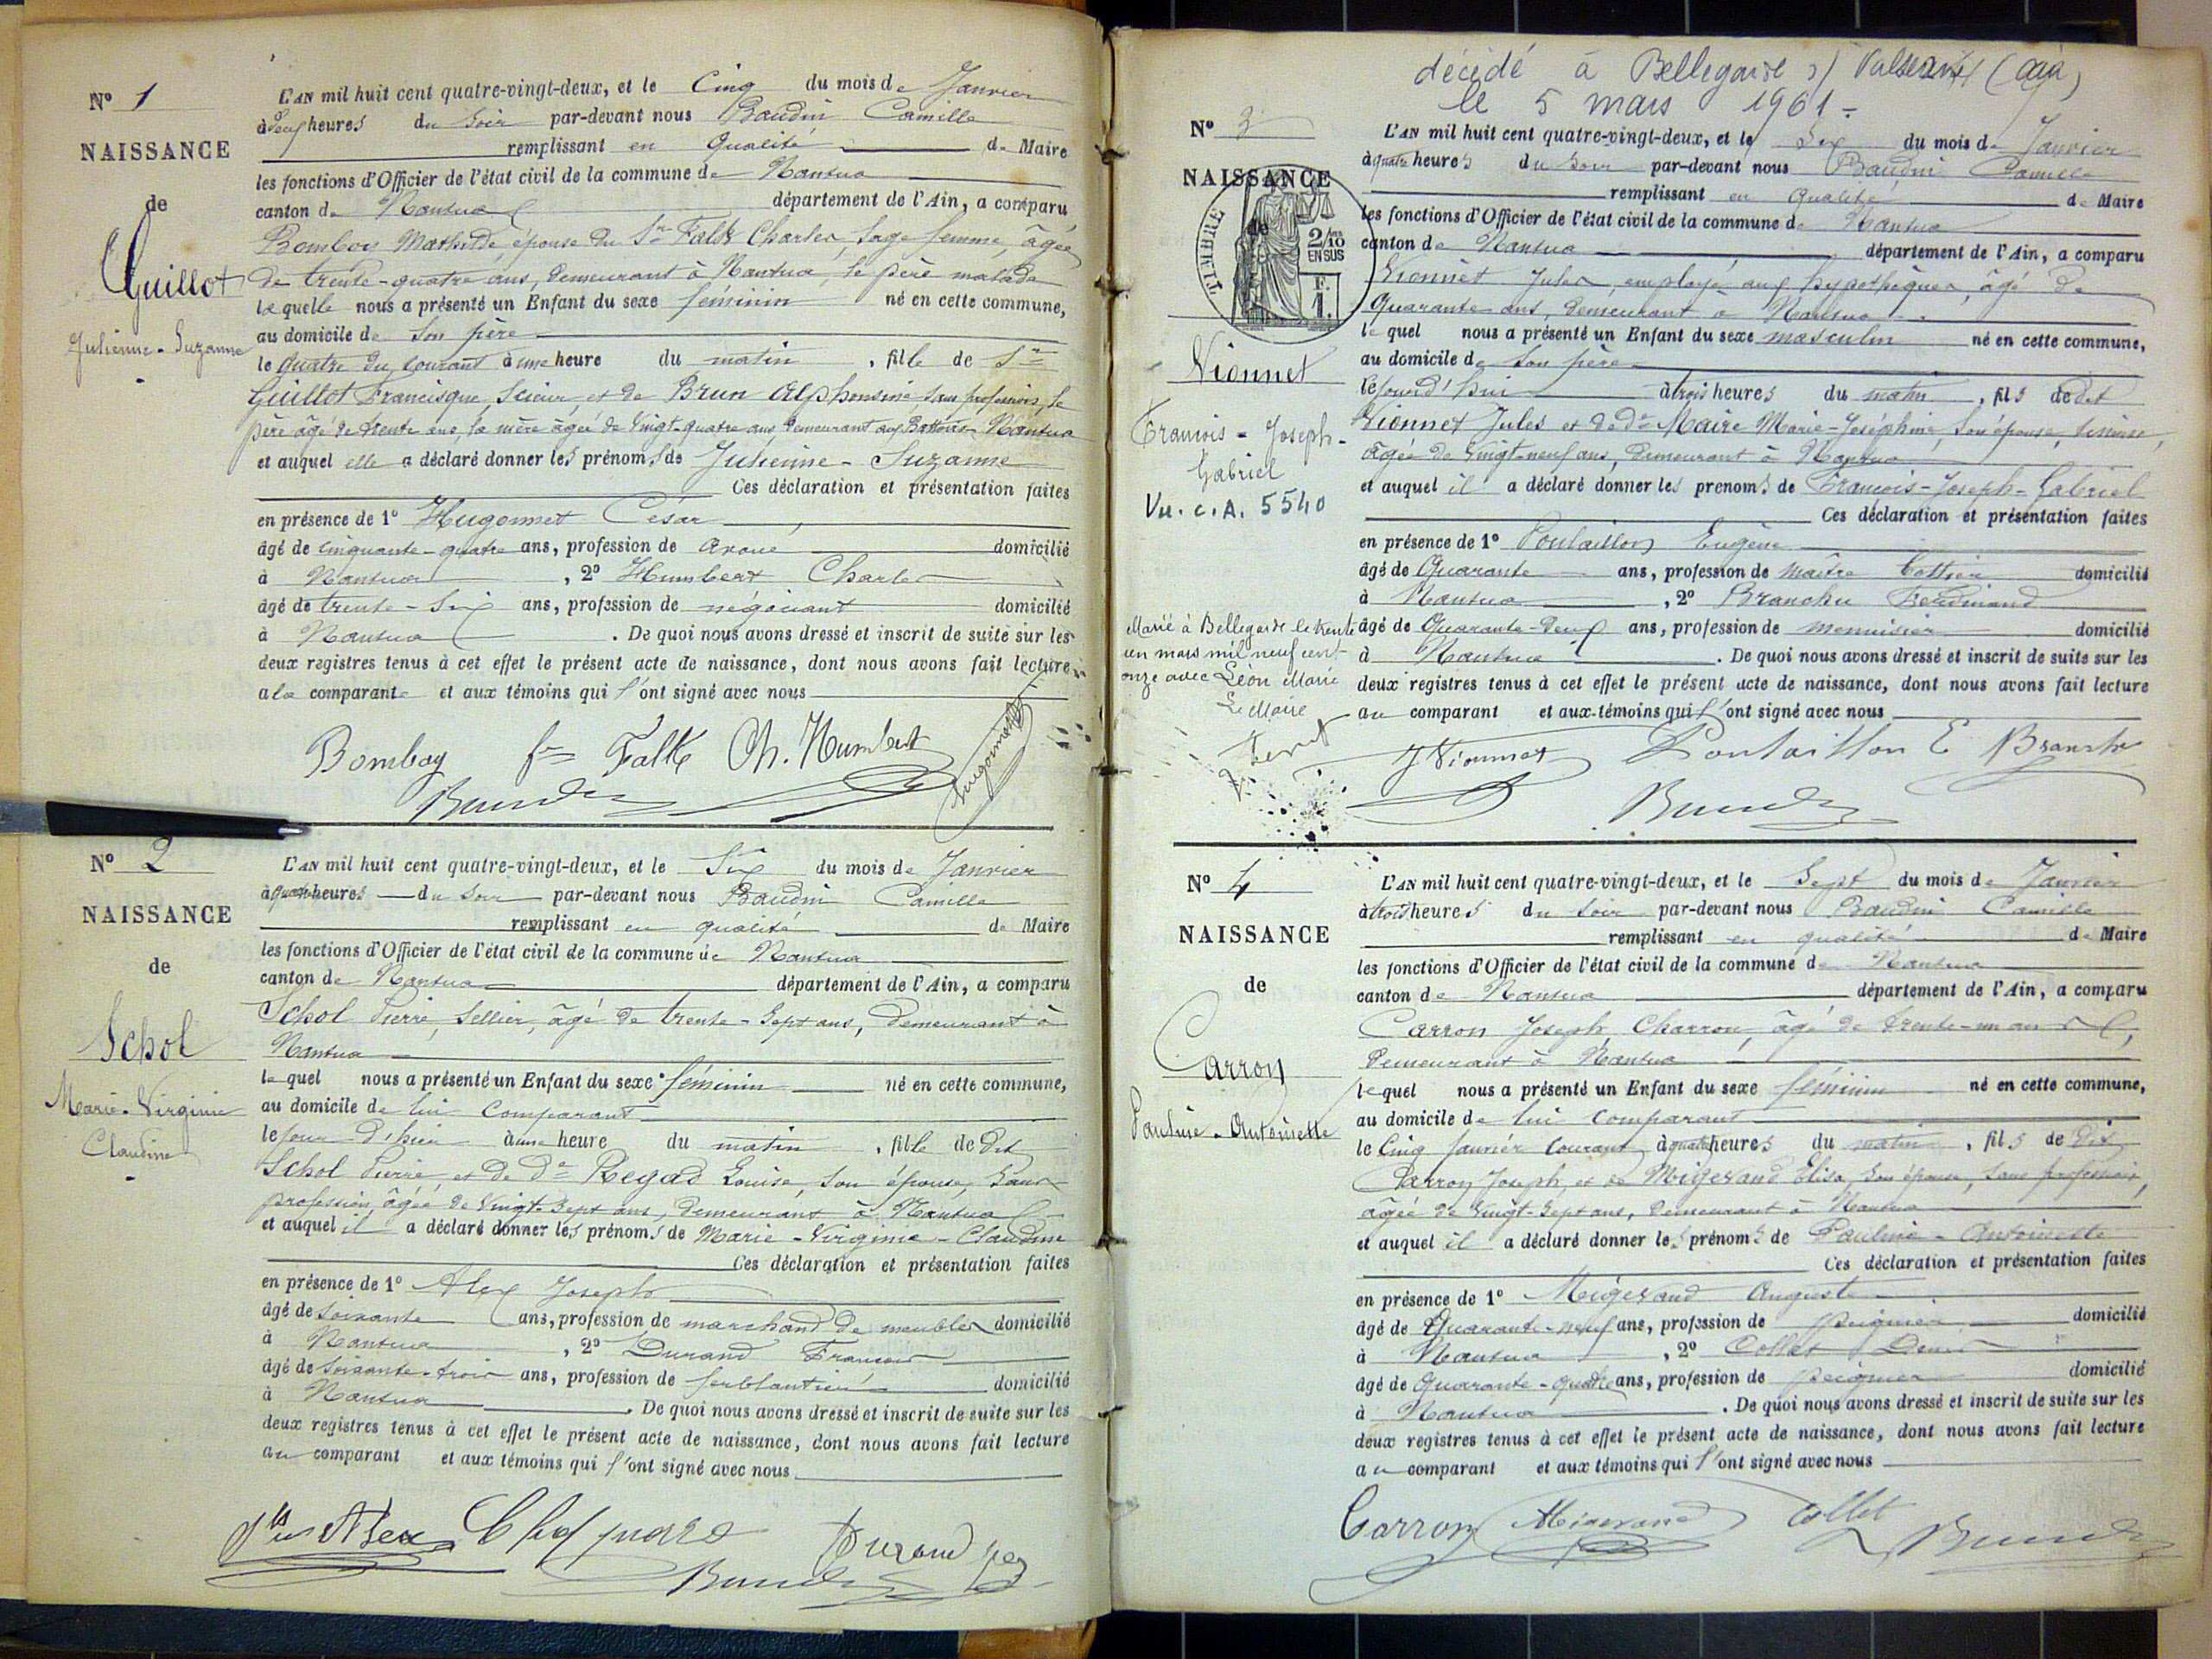 N° 1
NAISSANCE
de
Guillot
Julienne-Suzanne
L'AN mil huit cent quatre-vingt-deux, et le Cinq du mois de Janvier
à deux heures du Soir par-devant nous Baudin Camille
remplissant en Qualité de Maire
les fonctions d'Officier de l'état civil de la commune de Nantua
canton de Nantua département de l'Ain, a comparu
Bomboy Mathilde, épouse du Sr Falk Charles, Sage femme, âgée
de trente-quatre ans, demeurant à Nantua, le père malade
laquelle nous a présenté un Enfant du sexe féminin né en cette commune,
au domicile de Son père
le quatre du courant à une heure du matin, fille de Sr
Guillot Francisque, Scieur, et de Brun Alphonsine sans profession, le
père âgé de trente ans, la mère âgée de Vingt-quatre ans, demeurant aux Nantua
et auquel elle a déclaré donner les prénoms de Julienne-Suzanne
Ces déclaration et présentation faites
en présence de 1° Hugonnet César
âgé de cinquante-quatre ans, profession de Avoué domicilié
à Nantua, 2° Humbert Charles
âgé de trente-Six ans, profession de négociant domicilié
à Nantua. De quoi nous avons dressé et inscrit de suite sur les
deux registres tenus à cet effet le présent acte de naissance, dont nous avons fait lecture
a la comparante et aux témoins qui l'ont signé avec nous
Bomboy fe Falk Ch. Humbert Hugonnet
Baudin
N° 2
NAISSANCE
de
Schol
Marie-Virginie
Claudine
L'AN mil huit cent quatre-vingt-deux, et le Six du mois de Janvier
à quatre heures du Soir par-devant nous Baudin Camille
remplissant en qualité de Maire
les fonctions d'Officier de l'état civil de la commune de Nantua
canton de Nantua département de l'Ain, a comparu
Schol Pierre, Sellier, âgé de trente-Sept ans, demeurant à
Nantua
lequel nous a présenté un Enfant du sexe féminin né en cette commune,
au domicile de lui Comparant
le jour d'hier à une heure du matin, fille de dit
Schol Pierre, et de De Regad Louise, son épouse, Sans
profession, âgée de Vingt-Sept ans, demeurant à Nantua
et auquel il a déclaré donner les prénoms de Marie-Virginie-Claudine
Ces déclaration et présentation faites
en présence de 1° Alex Joseph
âgé de soixante ans, profession de marchand de meubles domicilié
à Nantua, 2° Durand François
âgé de Soixante-trois ans, profession de ferblantier domicilié
à Nantua. De quoi nous avons dressé et inscrit de suite sur les
deux registres tenus à cet effet le présent acte de naissance, dont nous avons fait lecture
au comparant et aux témoins qui l'ont signé avec nous
Alex Durand
Baudin
décédé à Bellegarde s/ Valserine (Ain)
le 5 mars 1961
N° 3
NAISSANCE
de
TIMBRE
2/10 EN SUS
F.
1.
Vionnet
François-Joseph-
Gabriel
Vu. C.A. 5540
Marié à Bellegarde le trente
un mars mil neuf cent
onze avec Léon Marie
Le Maire
L'AN mil huit cent quatre-vingt-deux, et le Six du mois de Janvier
à quatre heures du Soir par-devant nous Baudin Camille
remplissant en Qualité de Maire
les fonctions d'Officier de l'état civil de la commune de Nantua
canton de Nantua département de l'Ain, a comparu
Vionnet Jules, employé aux hypothèques, âgé de
Quarante ans, demeurant à Nantua
lequel nous a présenté un Enfant du sexe masculin né en cette commune,
au domicile de Son père
lejourd'hui à trois heures du matin, fils de dit
Vionnet Jules et de De Maire Marie-Joséphine, Son épouse,
âgée de Vingt-neuf ans, demeurant à Nantua
et auquel il a déclaré donner les prenoms de François-Joseph-Gabriel
Ces déclaration et présentation faites
en présence de 1° Poulaillon Eugène
âgé de Quarante ans, profession de maître domicilié
à Nantua, 2° Branchu Ferdinand
âgé de Quarante-Deux ans, profession de menuisier domicilié
à Nantua. De quoi nous avons dressé et inscrit de suite sur les
deux registres tenus à cet effet le présent acte de naissance, dont nous avons fait lecture
au comparant et aux témoins qui l'ont signé avec nous
J Vionnet Poulaillon E Branchu
Baudin
N° 4
NAISSANCE
de
Carron
Pauline-Antoinette
L'AN mil huit cent quatre-vingt-deux, et le Sept du mois de Janvier
à trois heures du Soir par-devant nous Baudin Camille
remplissant en qualité de Maire
les fonctions d'Officier de l'état civil de la commune de Nantua
canton de Nantua département de l'Ain, a comparu
Carron Joseph, Charron, âgé de trente-un ans,
demeurant à Nantua
lequel nous a présenté un Enfant du sexe féminin né en cette commune,
au domicile de lui comparant
le Cinq Janvier Courant à quatre heures du matin, fils de dit
Carron Joseph, et de Migerand Elisa, Son épouse, Sans profession,
âgée de Vingt-Sept ans, demeurant à Nantua
et auquel il a déclaré donner les prénoms de Pauline-Antoinette
Ces déclaration et présentation faites
en présence de 1° Migerand Auguste
âgé de Quarante-neuf ans, profession de peignier domicilié
à Nantua, 2° Collet Denis
âgé de Quarante-quatre ans, profession de peignier domicilié
à Nantua. De quoi nous avons dressé et inscrit de suite sur les
deux registres tenus à cet effet le présent acte de naissance, dont nous avons fait lecture
au comparant et aux témoins qui l'ont signé avec nous
Carron Migerand Collet Baudin